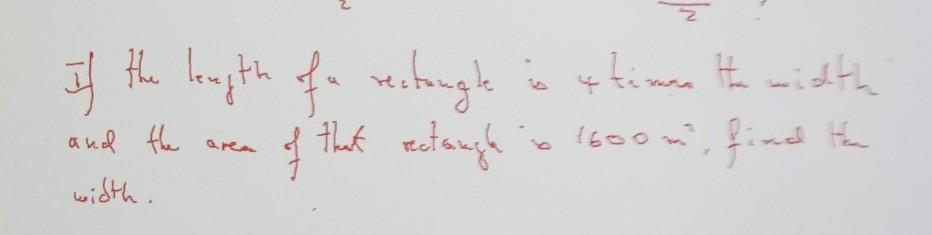 2 2
If the length of a rectangle is 4 times the width
and the area of that rectangle is 1600 m², find the
width.